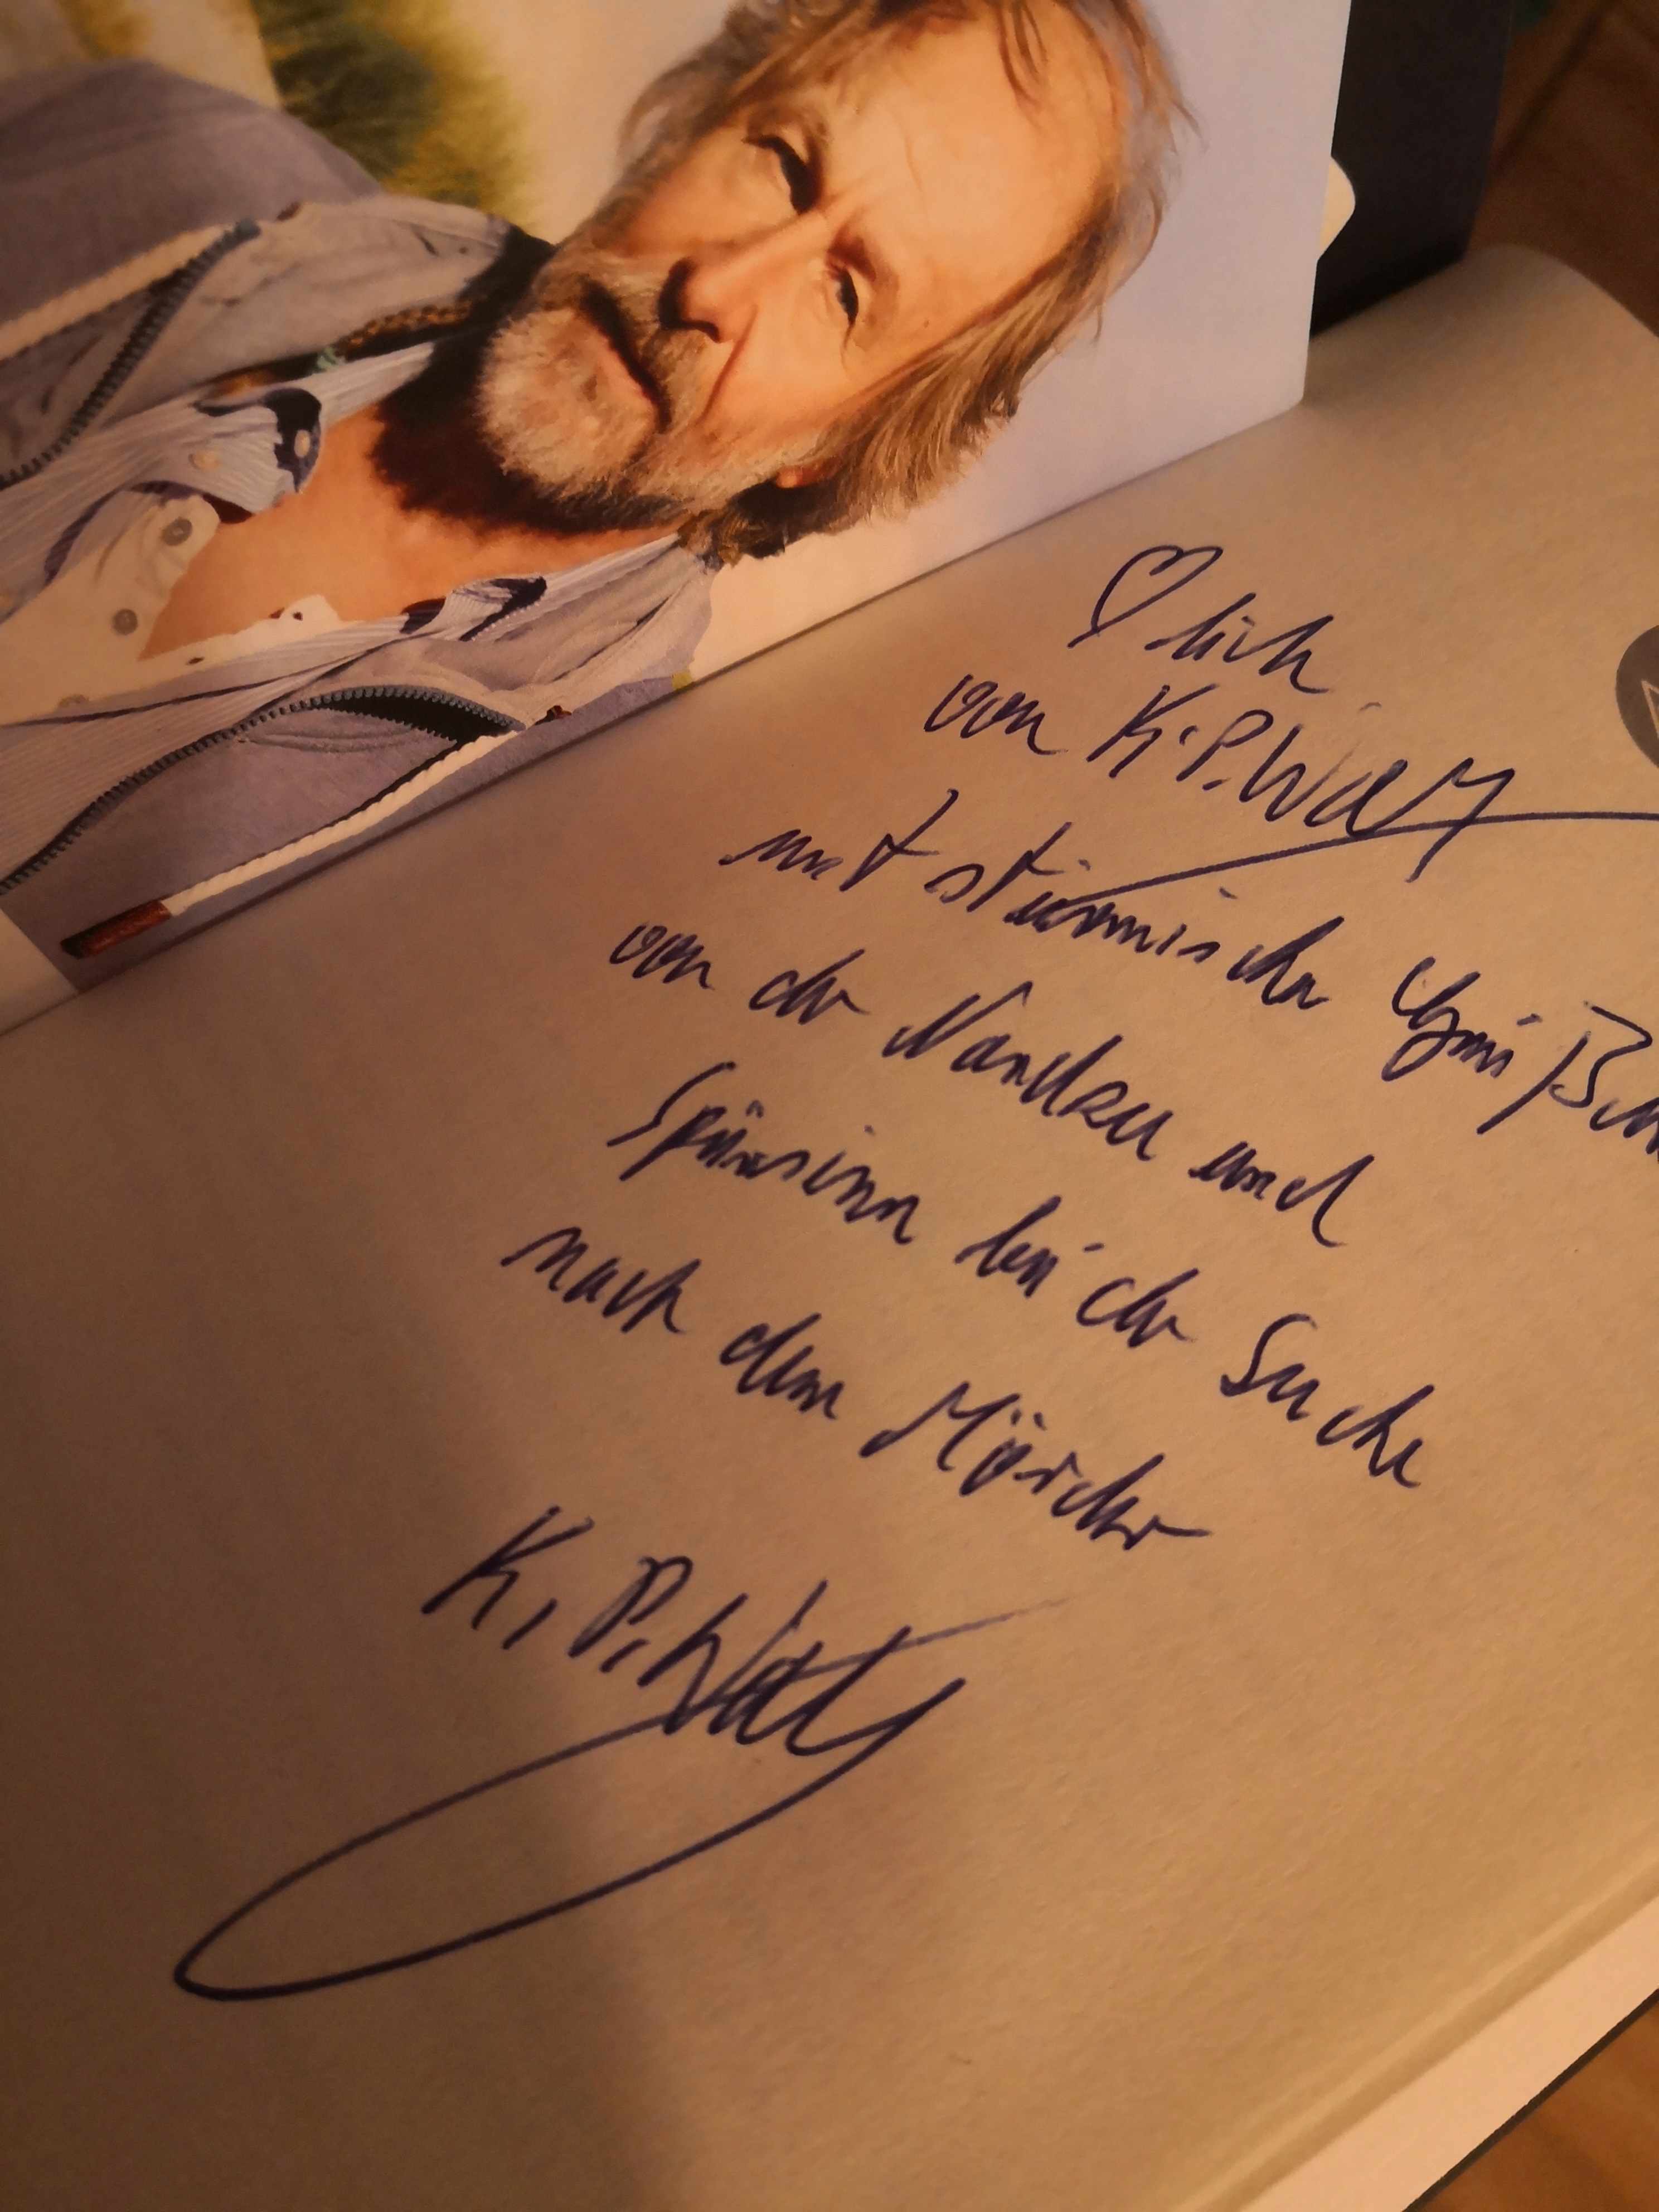 ♡lich
von K. P. Wolf
mit stürmischen Grüßen
von der Nordsee und
Spürsinn bei der Suche
nach dem Mörder
K. P. Wolf